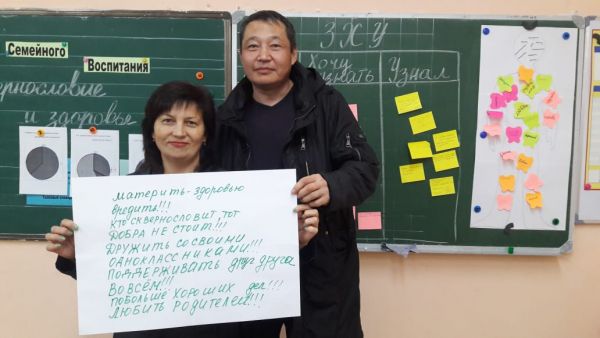 Семейного
Воспитания
нословие
и здоровье
ЗХУ
Хочу
знать
Узнал
Материть-здоровью
вредить!!!
Кто сквернословит, тот
добра не стоит!!!
Дружить со своими
одноклассниками!!!
Поддерживать друг друга
во всём!!!
Побольше хороших дел!!!
Любить родителей!!!